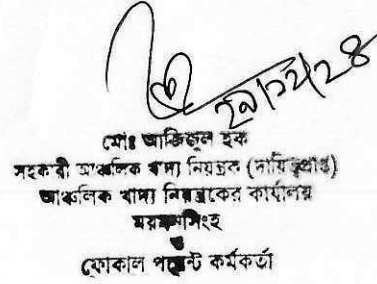 ২৯/১২/২৪
মোঃ আজিজুল হক
সহকারী আঞ্চলিক খাদ্য নিয়ন্ত্রক (দায়িত্বপ্রাপ্ত)
আঞ্চলিক খাদ্য নিয়ন্ত্রকের কার্যালয়
ময়মনসিংহ
ও
ফোকাল পয়েন্ট কর্মকর্তা